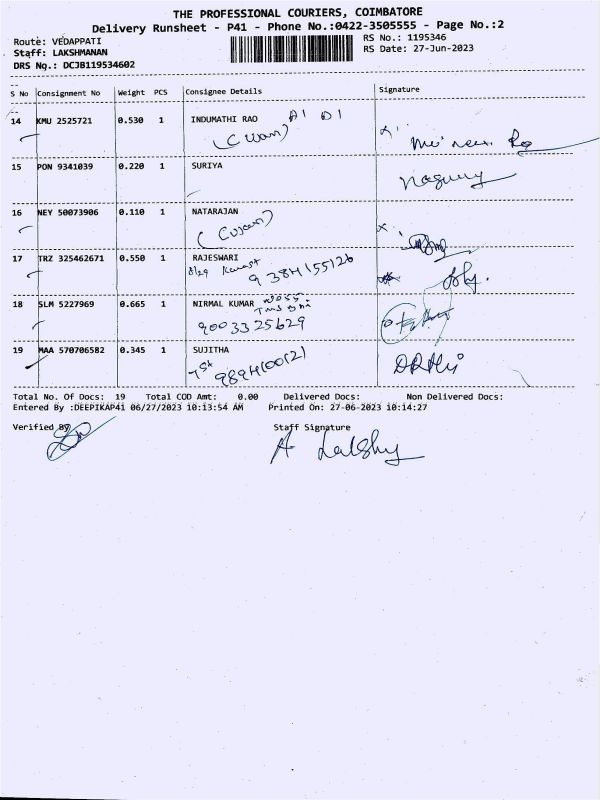 THE PROFESSIONAL COURIERS, COIMBATORE
Delivery Runsheet - P41 - Phone No.:0422-3505555 - Page No.:2
Route: VEDAPPATI
RS No.: 1195346
Staff: LAKSHMANAN
RS Date: 27-Jun-2023
DRS No.: DCJB119534602
S No Consignment No Weight PCS Consignee Details Signature
14 KMU 2525721 0.530 1 INDUMATHI RAO
15 PON 9341039 0.220 1 SURIYA
16 NEY 50073906 0.110 1 NATARAJAN
17 TRZ 325462671 0.550 1 RAJESWARI
18 SLM 5227969 0.665 1 NIRMAL KUMAR
9003325629
19 MAA 570706582 0.345 1 SUJITHA
Total No. Of Docs: 19 Total COD Amt: 0.00 Delivered Docs: Non Delivered Docs:
Entered By :DEEPIKAP41 06/27/2023 10:13:54 AM Printed On: 27-06-2023 10:14:27
Verified By
Staff Signature